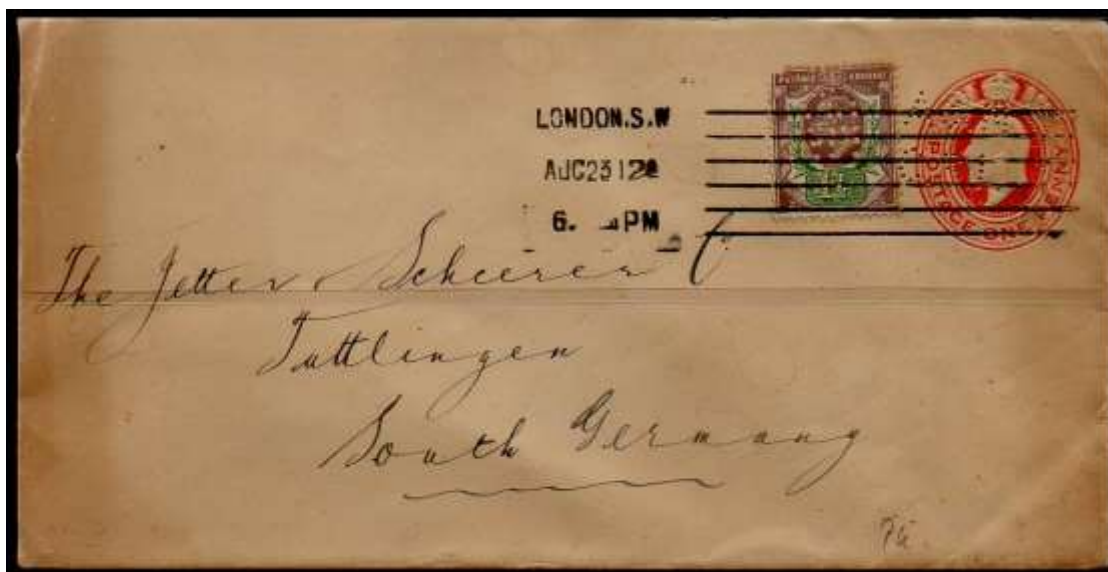 LONDON.S.W
AUG 23 12
6. PM
POSTAGE ONE PENNY
The Jetter Scheerer C
Tuttlingen
South Germany